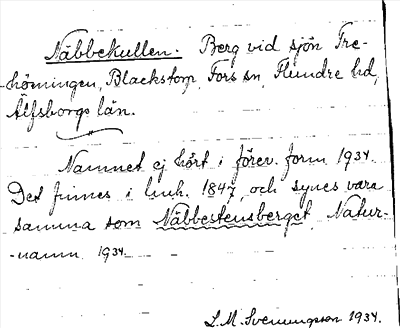 Näbbekullen. Berg vid sjön Tre-
hörningen, Blackstorp, Fors sn, Flundre hd,
Älfsborgs län.
Namnet ej hört i förev. form 1934.
Det finnes i lmh. 1847, och synes vara
samma som Näbbestensberget, Natur-
-namn 1934.
L.M. Svenungsson 1934.